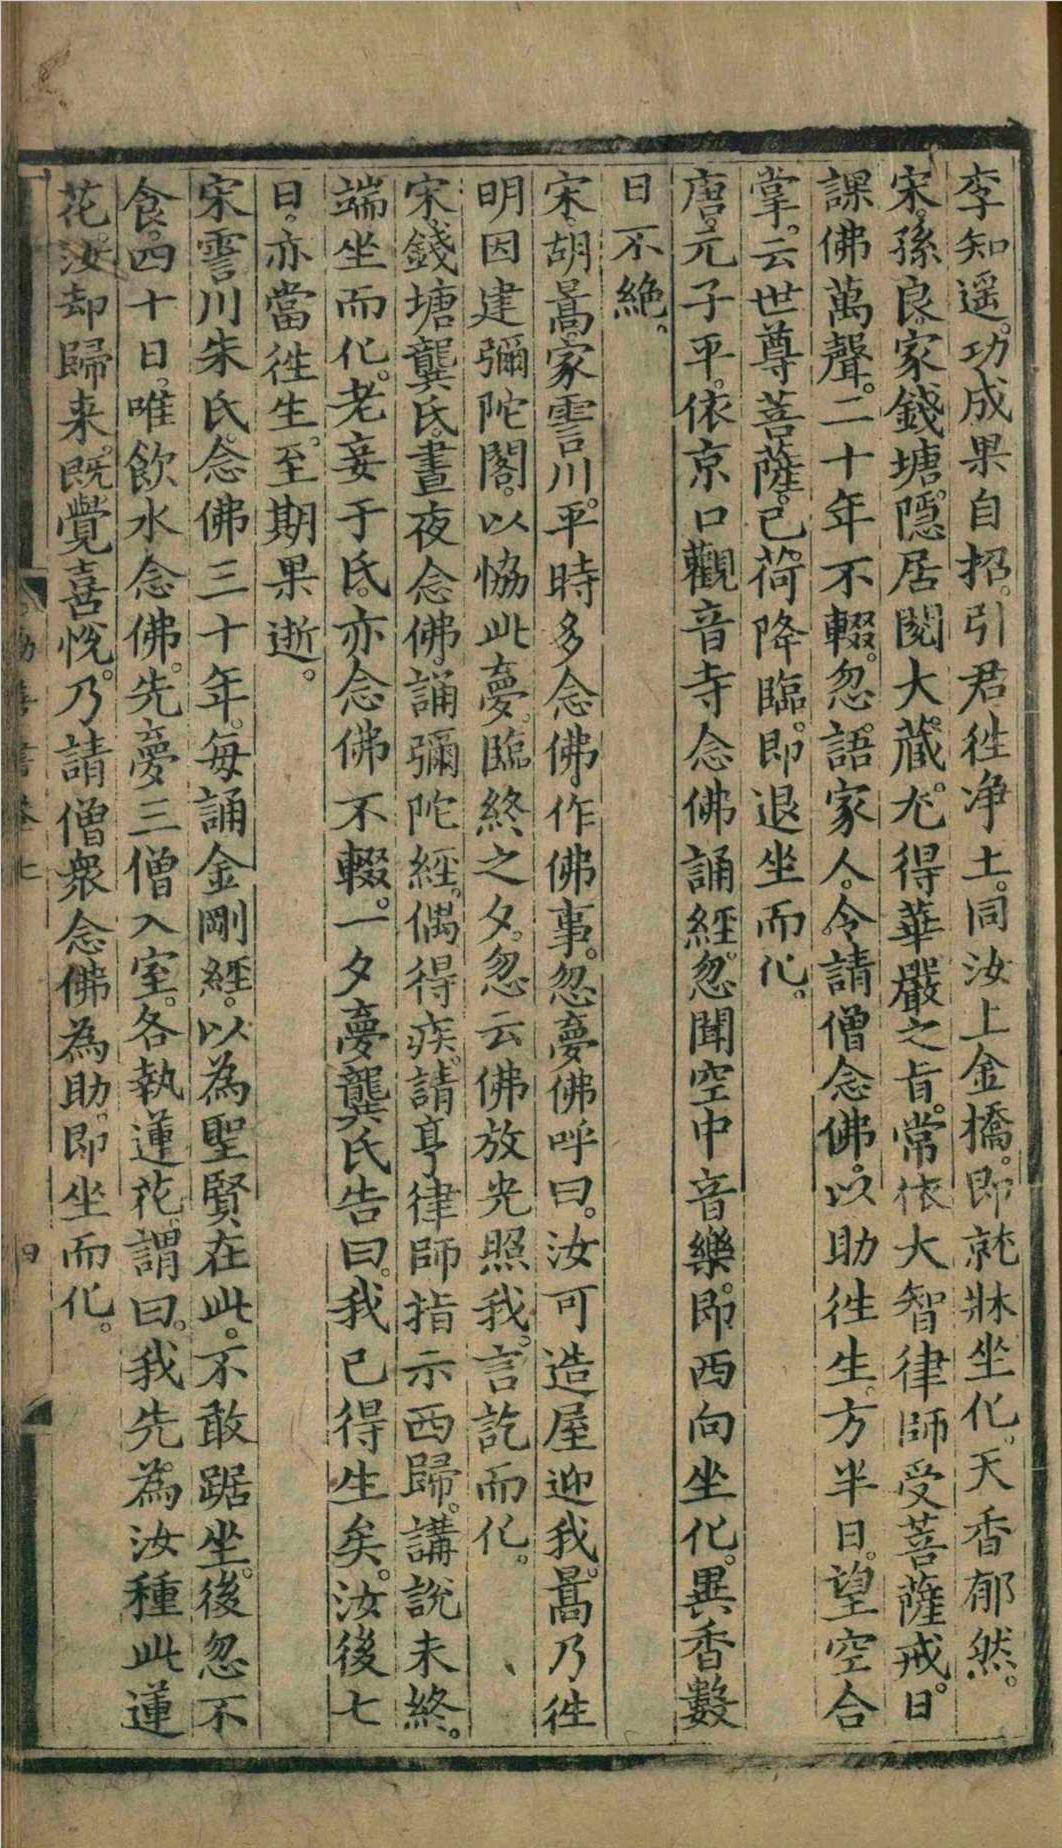 李知遥。功成果自招。引君徃净土。同汝上金橋。即就牀坐化。天香郁然。
宋。孫良。家錢塘。隱居閱大藏。尤得華嚴之旨。常依大智律師受菩薩戒。日
課佛萬聲。二十年不輟。忽語家人。令請僧念佛。以助徃生。方半日。望空合
掌。云世尊菩薩。已荷降臨。即退坐而化。
唐。元子平。依京口觀音寺念佛誦經。忽聞空中音樂。即西向坐化。異香數
日不絶。
宋。胡暠。家雲川。平時多念佛。作佛事。忽夢佛呼曰。汝可造屋迎我。暠乃徃
明因建彌陀閣。以恊此夢。臨終之夕。忽云佛放光照我。言訖而化。
宋。錢塘龔氏。晝夜念佛。誦彌陀經。偶得疾。請亨律師指示西歸。講說未終。
端坐而化。老妾于氏。亦念佛不輟。一夕夢龔氏告曰。我已得生矣。汝後七
日。亦當徃生。至期果逝。
宋霅川朱氏。念佛三十年。每誦金剛經。以為聖賢在此。不敢踞坐。後忽不
食。四十日。唯飲水念佛。先夢三僧入室。各執蓮花。謂曰。我先為汝種此蓮
花。汝却歸来。既覺喜悅。乃請僧衆念佛為助。即坐而化。
勸善書卷七
四